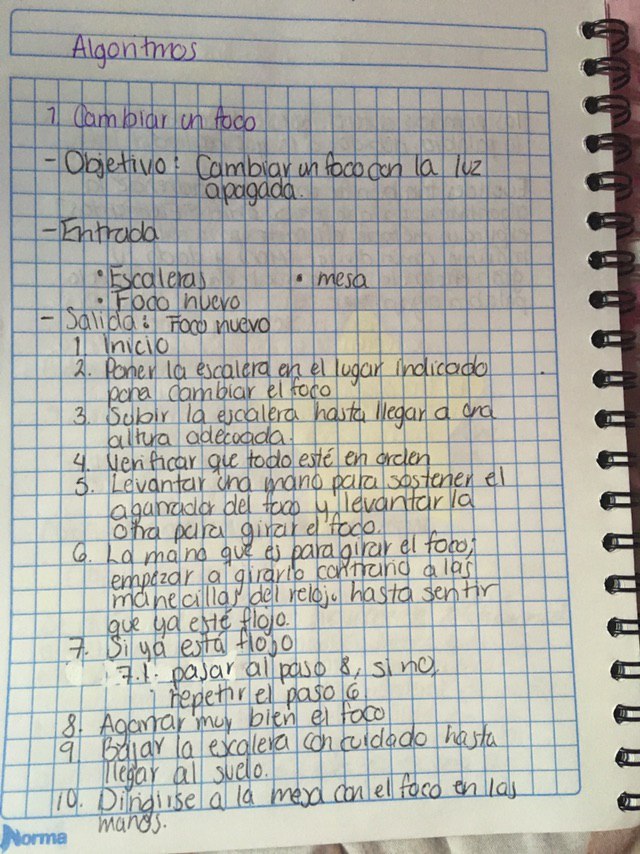 Algoritmos
1. Cambiar un foco
- Objetivo: Cambiar un foco con la luz
apagada.
- Entrada
• Escaleras • mesa
• Foco nuevo
- Salida: Foco nuevo
1. Inicio
2. Poner la escalera en el lugar indicado
para cambiar el foco
3. Subir la escalera hasta llegar a una
altura adecuada.
4. Verificar que todo esté en orden
5. Levantar una mano para sostener el
agarrador del foco y levantar la
otra para girar el foco.
6. La mano que es para girar el foco,
empezar a girarlo contrario a las
manecillas del reloj. hasta sentir
que ya esté flojo.
7. Si ya está flojo
7.1. pasar al paso 8, si no,
repetir el paso 6.
8. Agarrar muy bien el foco
9. Bajar la escalera con cuidado hasta
llegar al suelo.
10. Dirigirse a la mesa con el foco en las
manos.
Norma